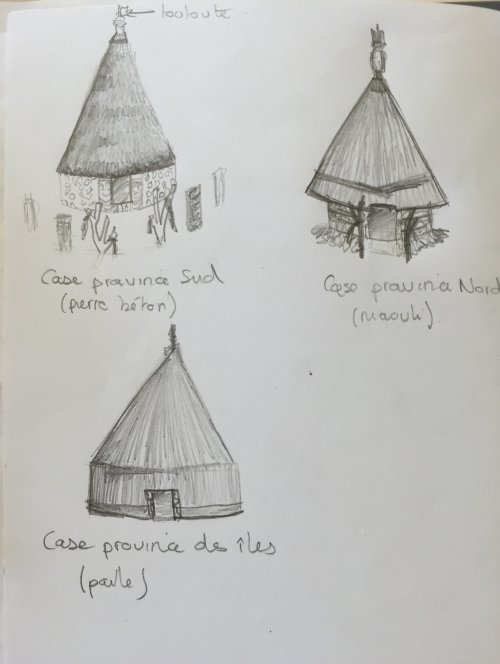 touloute
Case province Sud
(pierre béton)
Case province Nord
(niaouli).
Case province de îles
(paille)